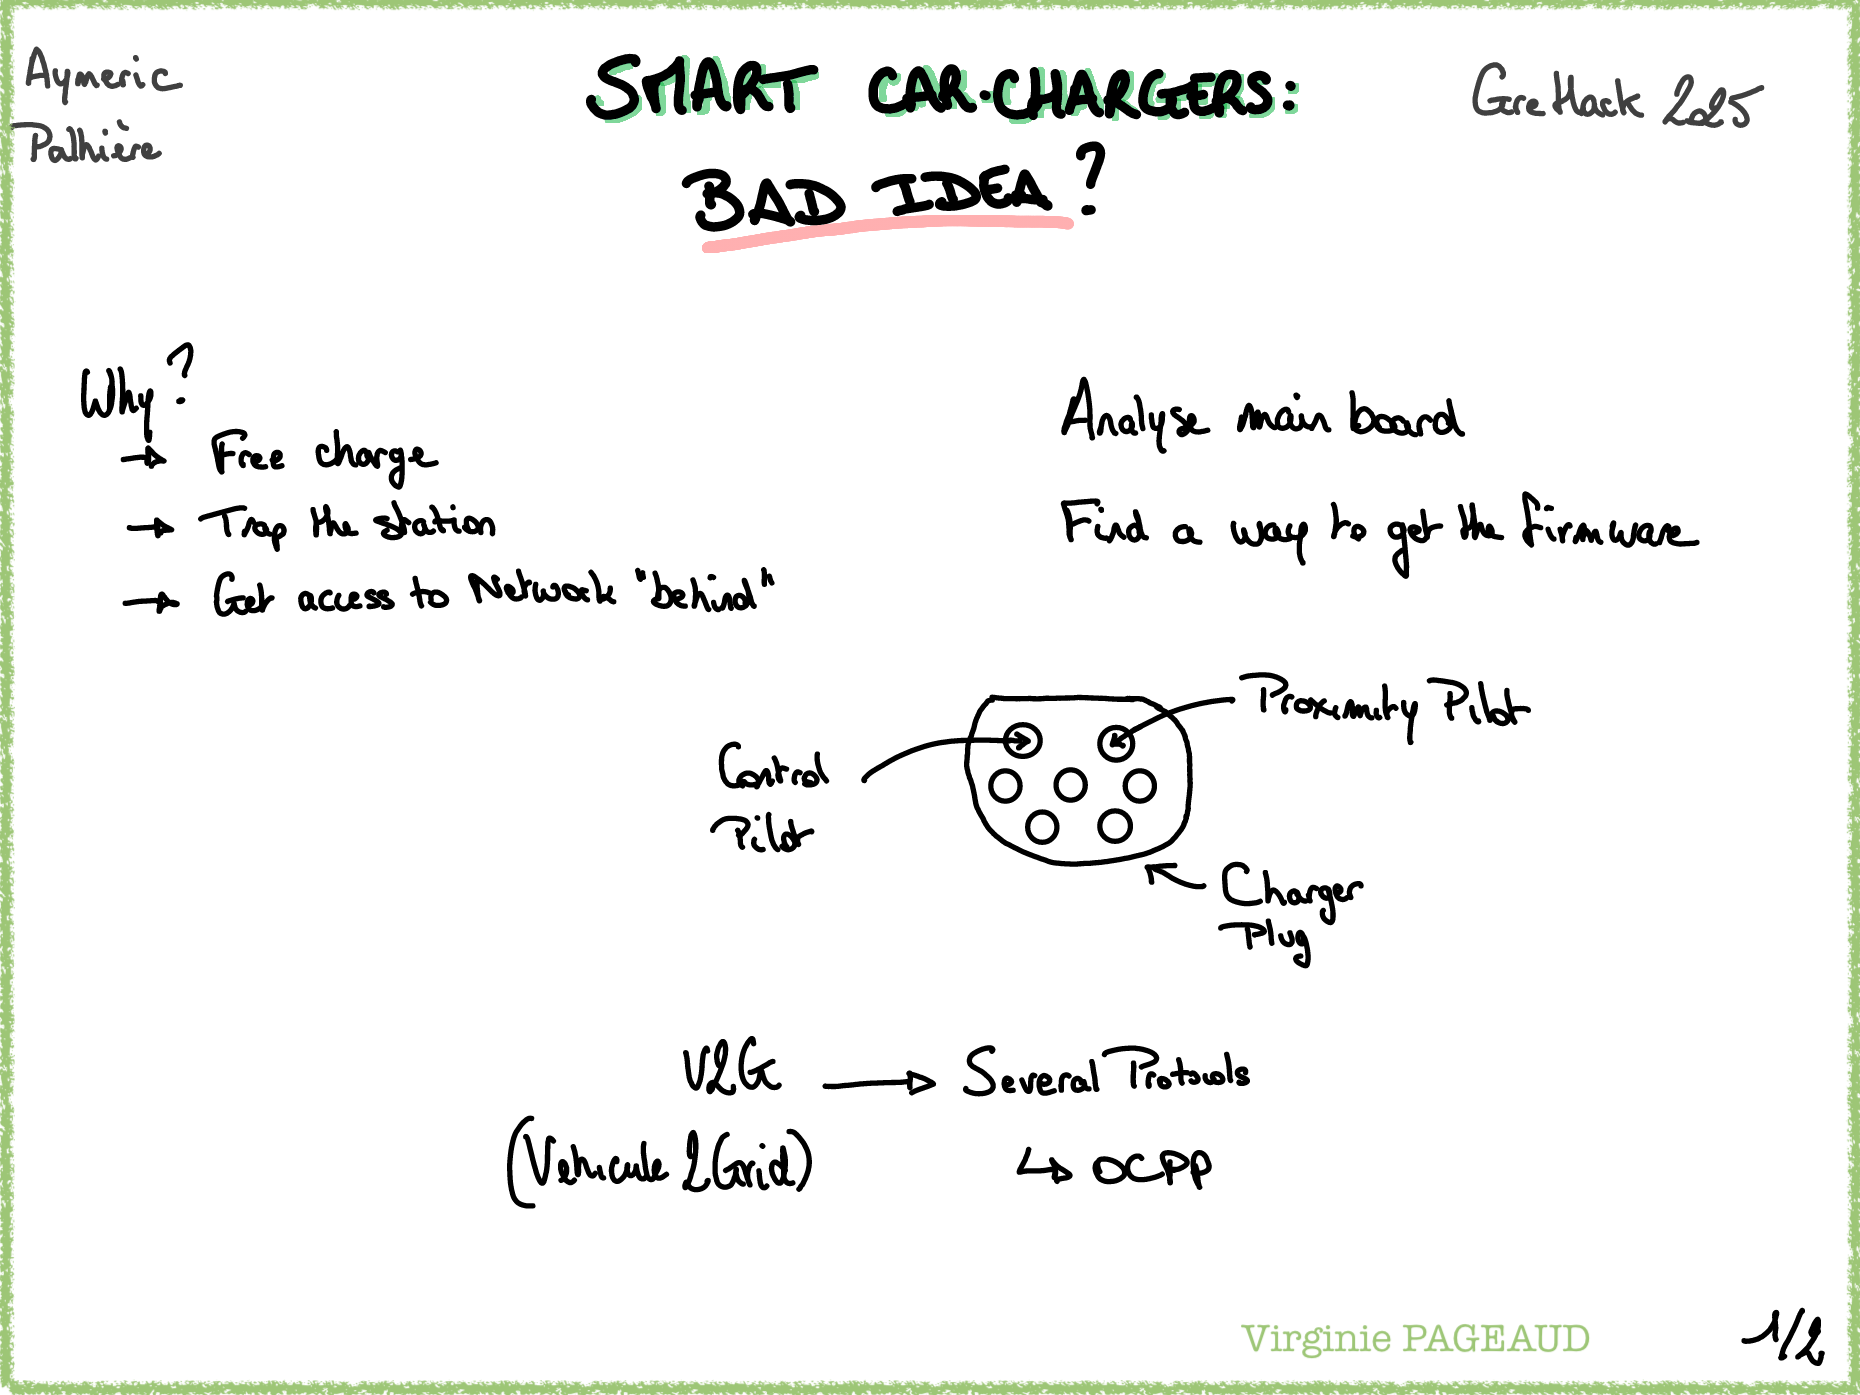 Aymeric
Palhière
SMART CAR-CHARGERS:
BAD IDEA?
GreHack 2025
Why?
→ Free charge
→ Trap the station
→ Get access to Network "behind"
Analyse main board
Find a way to get the firmware
Control
Pilot
Proximity Pilot
Charger
Plug
V2G → Several Protocols
(Vehicule 2Grid)
↳ OCPP
Virginie PAGEAUD
1/2